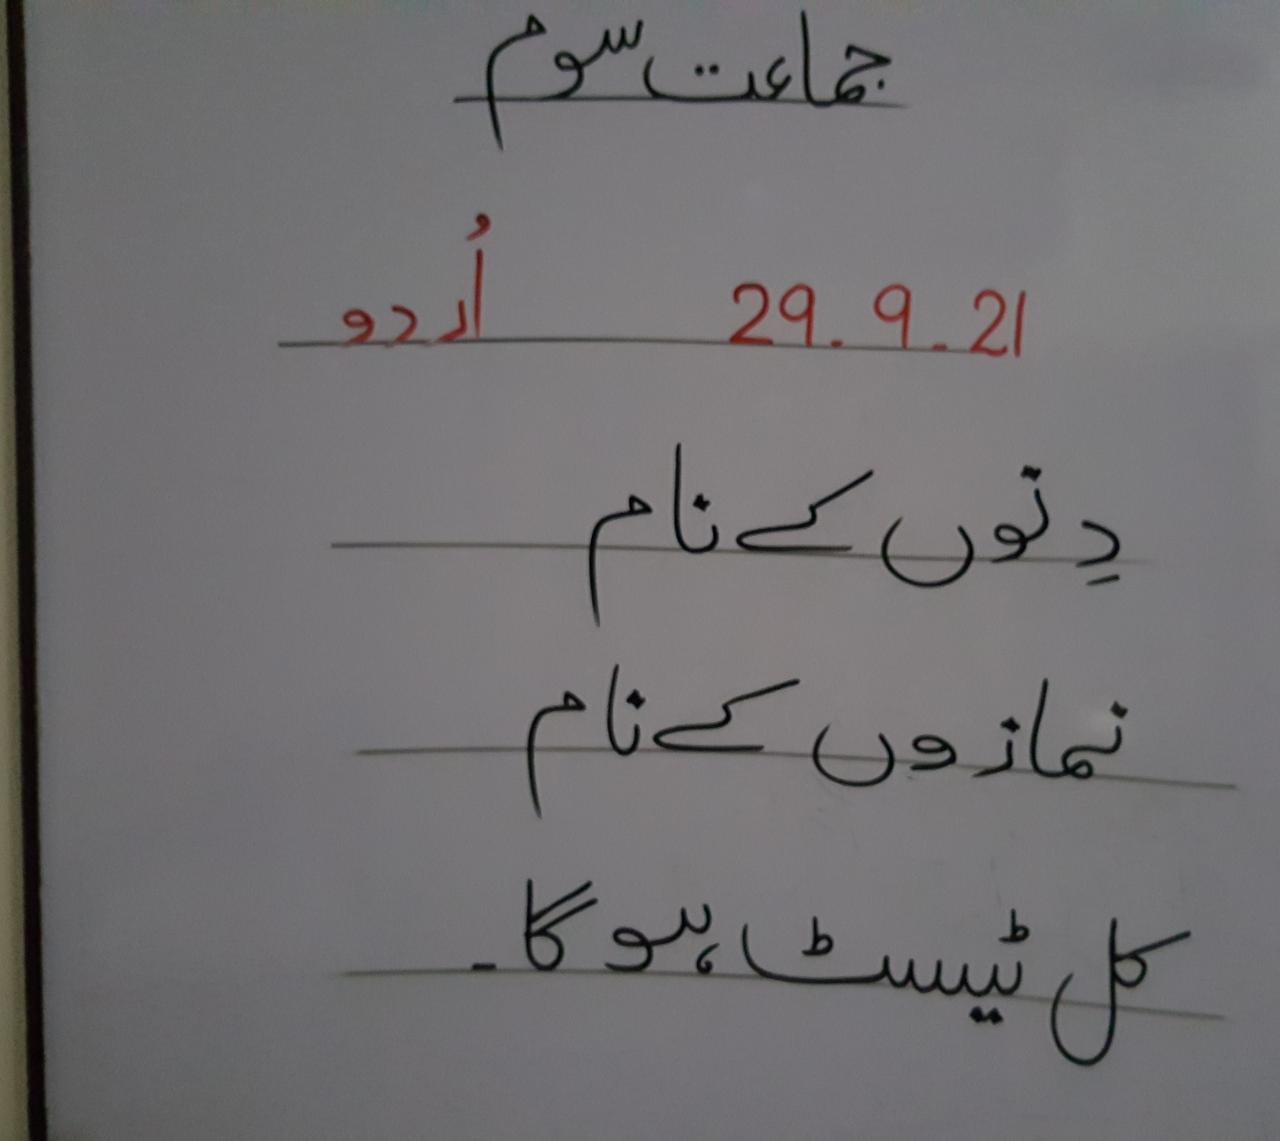 جماعت سوم
29.9.21 اُردو
دِنوں کے نام
نمازوں کے نام
کل ٹیسٹ ہو گا۔